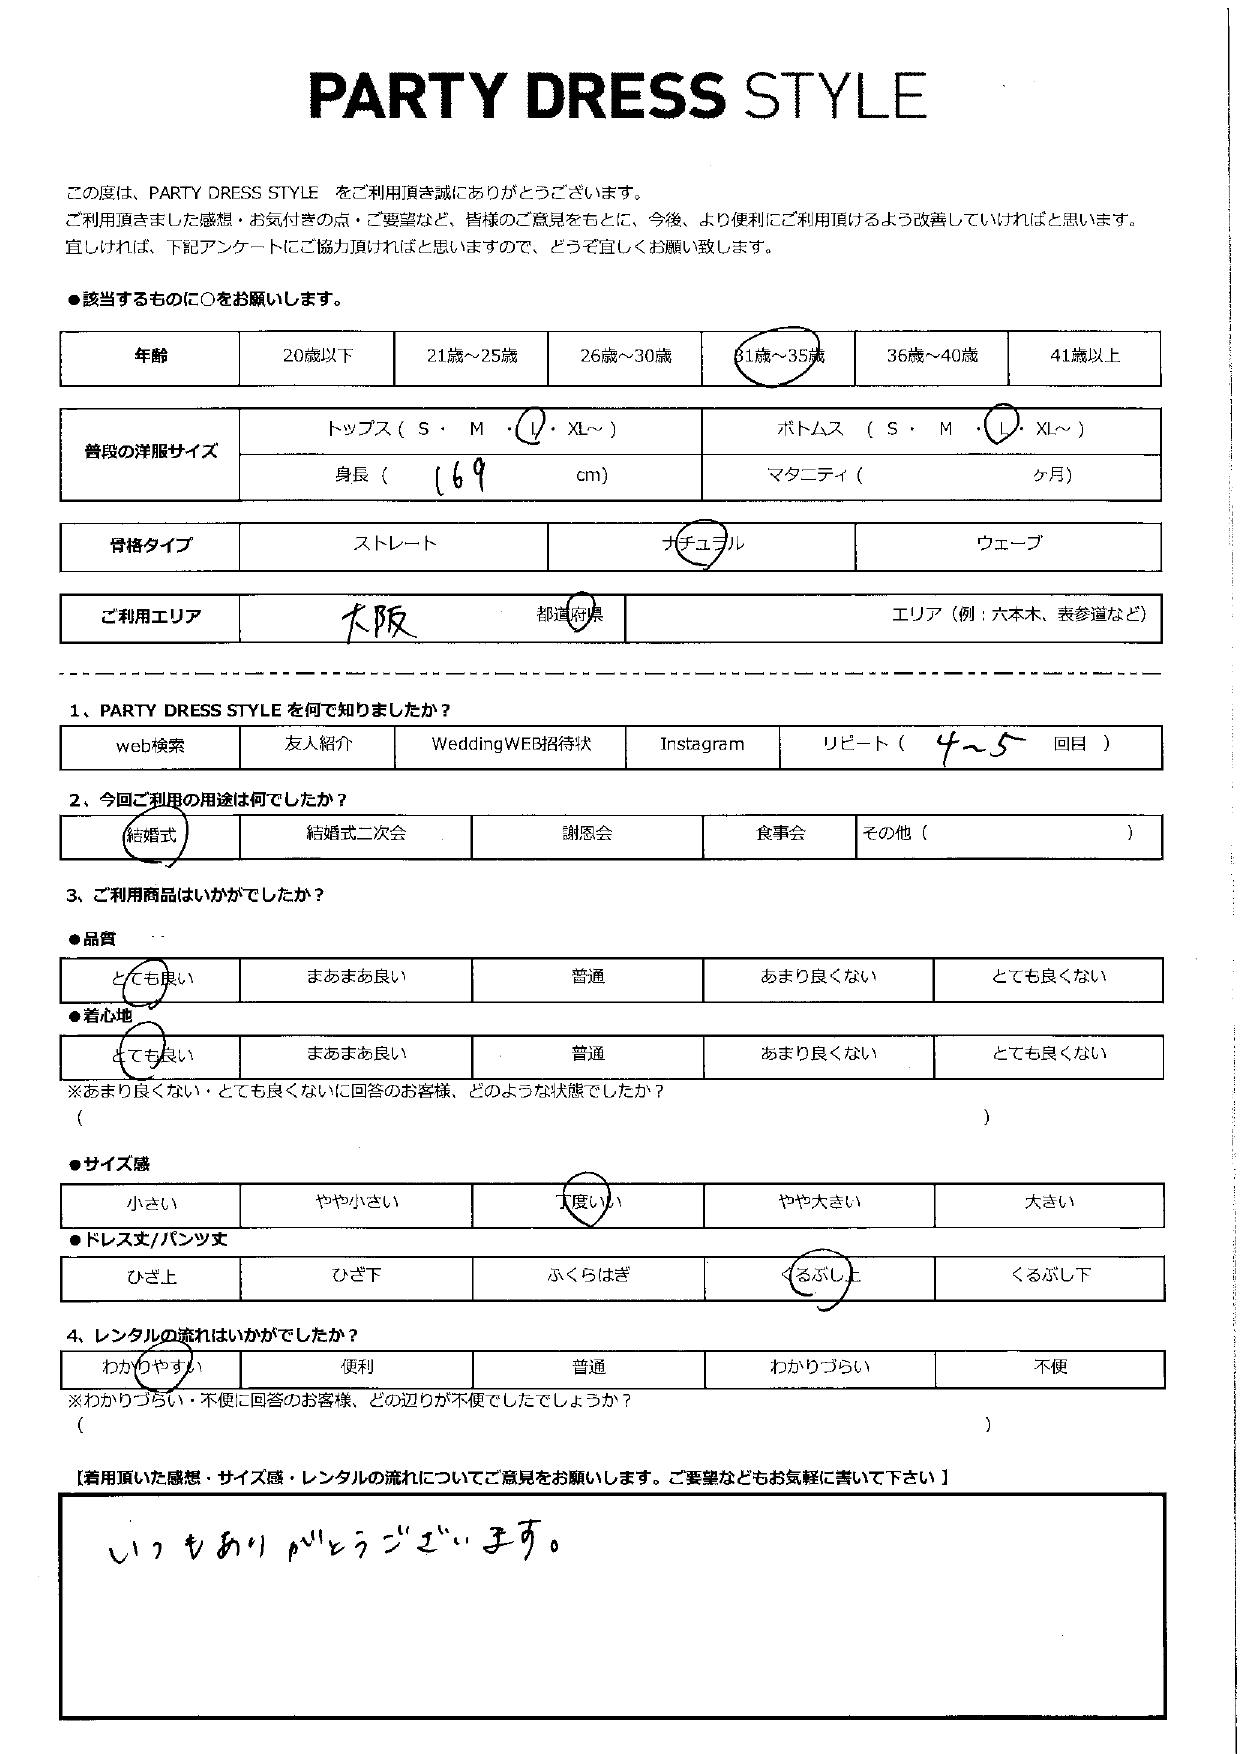 PARTY DRESS STYLE
この度は、PARTY DRESS STYLE をご利用頂き誠にありがとうございます。
ご利用頂きました感想・お気付きの点・ご要望など、皆様のご意見をもとに、今後、より便利にご利用頂けるよう改善していければと思います。
宜しければ、下記アンケートにご協力頂ければと思いますので、どうぞ宜しくお願い致します。
●該当するものに○をお願いします。
年齢 20歳以下 21歳～25歳 26歳～30歳 31歳～35歳 36歳～40歳 41歳以上
普段の洋服サイズ
トップス ( S ・ M ・ L ・ XL～ ) ボトムス ( S ・ M ・ L ・ XL～ )
身長 ( 169 cm) マタニティ ( ヶ月)
骨格タイプ ストレート ナチュラル ウェーブ
ご利用エリア 大阪 都道府県 エリア（例：六本木、表参道など）
1、PARTY DRESS STYLE を何で知りましたか？
web検索 友人紹介 WeddingWEB招待状 Instagram リピート ( 4～5 回目 )
2、今回ご利用の用途は何でしたか？
結婚式 結婚式二次会 謝恩会 食事会 その他 ( )
3、ご利用商品はいかがでしたか？
●品質
とても良い まあまあ良い 普通 あまり良くない とても良くない
●着心地
とても良い まあまあ良い 普通 あまり良くない とても良くない
※あまり良くない・とても良くないに回答のお客様、どのような状態でしたか？
( )
●サイズ感
小さい やや小さい 丁度いい やや大きい 大きい
●ドレス丈/パンツ丈
ひざ上 ひざ下 ふくらはぎ くるぶし上 くるぶし下
4、レンタルの流れはいかがでしたか？
わかりやすい 便利 普通 わかりづらい 不便
※わかりづらい・不便に回答のお客様、どの辺りが不便でしたでしょうか？
( )
【着用頂いた感想・サイズ感・レンタルの流れについてご意見をお願いします。ご要望などもお気軽に書いて下さい 】
いつもありがとうございます。